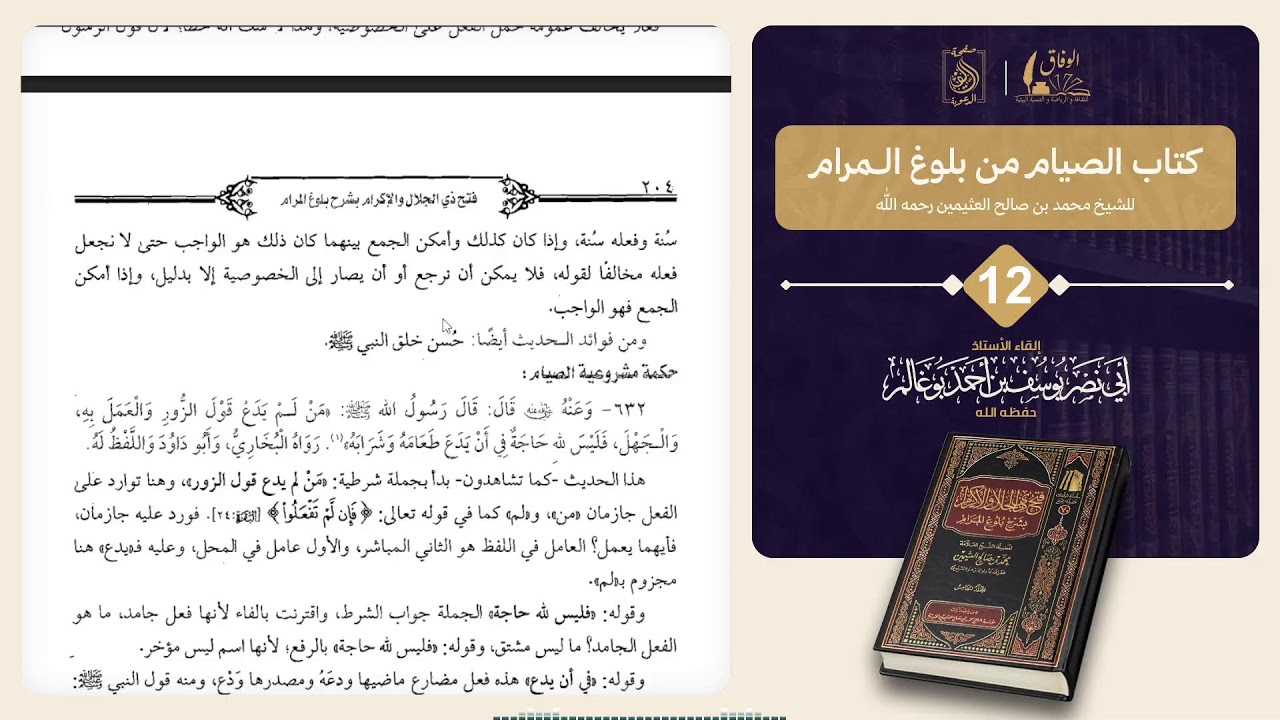 فعلاً يخالف عمومه حمل الفعل على الخصوصية، وهذا لا شك أنه خطأ؛ لأن قول الرسول
٢٠٤
فتح ذي الجلال والإكرام بشرح بلوغ المرام
سُنة وفعله سُنة، وإذا كان كذلك وأمكن الجمع بينهما كان ذلك هو الواجب حتى لا نجعل
فعله مخالفًا لقوله، فلا يمكن أن نرجع أو أن يصار إلى الخصوصية إلا بدليل، وإذا أمكن
الجمع فهو الواجب.
ومن فوائد الحديث أيضًا: حُسن خلق النبي ﷺ.
حكمة مشروعية الصيام:
٦٣٢- وَعَنْهُ قَالَ: قَالَ رَسُولُ الله ﷺ: «مَنْ لَـمْ يَدَعْ قَوْلَ الزُّورِ وَالْعَمَلَ بِهِ،
وَالْـجَهْلَ، فَلَيْسَ لله حَاجَةٌ فِي أَنْ يَدَعَ طَعَامَهُ وَشَرَابَهُ»(١). رَوَاهُ الْبُخَارِيُّ، وَأَبُو دَاوُدَ وَاللَّفْظُ لَهُ.
هذا الحديث -كما تشاهدون- بدأ بجملة شرطية: «مَنْ لم يدع قول الزور»، وهنا توارد على
الفعل جازمان «من»، و«لم» كما في قوله تعالى: ﴿فَإِن لَّمْ تَفْعَلُوا﴾ [البقرة: ٢٤]. فورد عليه جازمان،
فأيهما يعمل؟ العامل في اللفظ هو الثاني المباشر، والأول عامل في المحل، وعليه فـ«يدع» هنا
مجزوم بـ«لم».
وقوله: «فليس لله حاجة» الجملة جواب الشرط، واقترنت بالفاء لأنها فعل جامد، ما هو
الفعل الجامد؟ ما ليس مشتق، وقوله: «فليس لله حاجة» بالرفع؛ لأنها اسم ليس مؤخر.
وقوله: «في أن يدع» هذه فعل مضارع ماضيها ودعَهُ ومصدرها وَدْع، ومنه قول النبي ﷺ:
صفحة
الدعوية
الوفاق
للثقافة و الرياضة و التنمية البيئية
كتاب الصيام من بلوغ الـمرام
للشيخ محمد بن صالح العثيمين رحمه الله
12
إلقاء الأستاذ
أبي نصر يوسف بن أحمد بوغالم
حفظه الله
فتح ذي الجلال والإكرام
بشرح بلوغ المرام
محمد بن صالح العثيمين